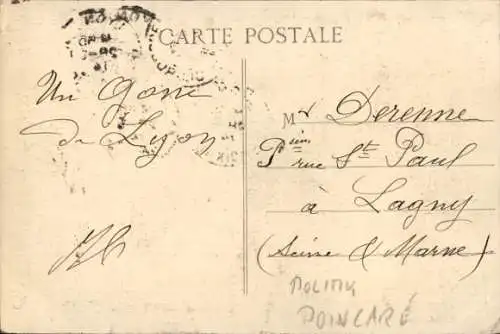 CARTE POSTALE
Un
de Lyon
Mr Derenne
rue St Paul
à Lagny
(Seine & Marne)
POLITIK
POINCARÉ